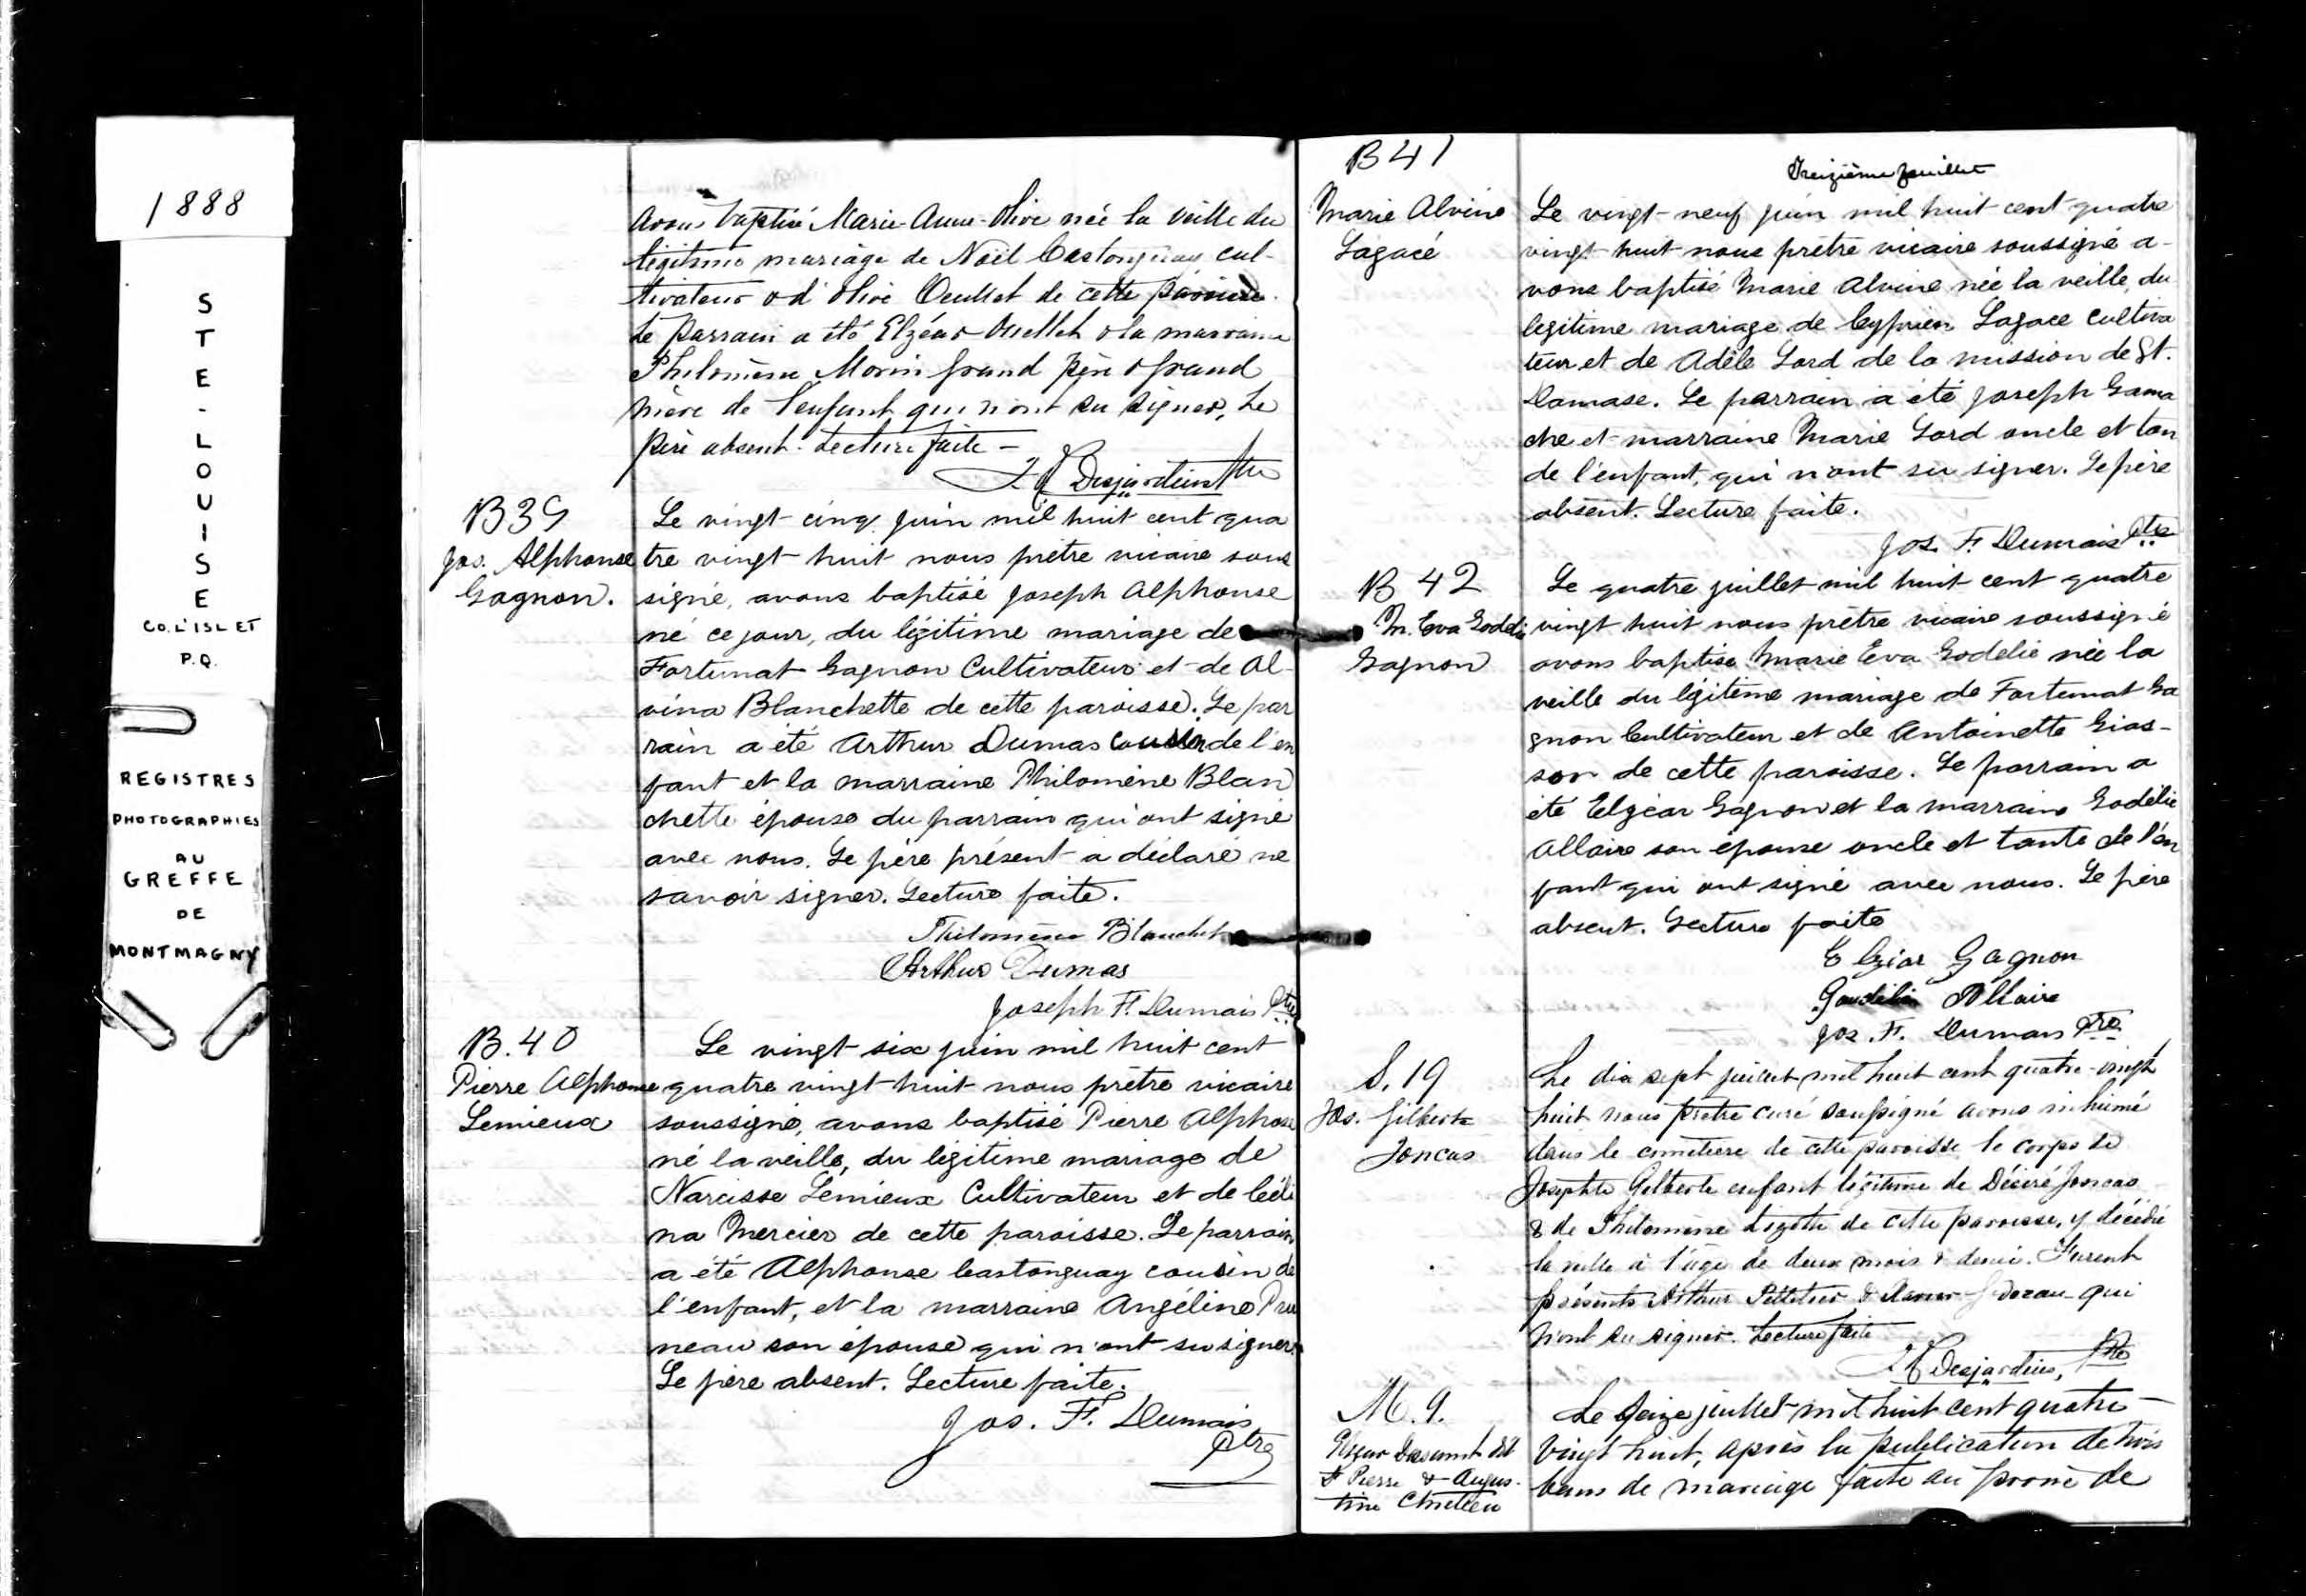 1888
STE-LOUISE
CO. L'ISLET
P.Q.
REGISTRES
PHOTOGRAPHIES
AU
GREFFE
DE
MONTMAGNY
avons baptisé Marie-Anne-Olive née la veille du
légitime mariage de Noël Castonguay cul-
tivateur & d'Olive Oeullet de cette paroisse.
Le parrain a été Elzéar Ouellet & la marraine
Philomène Morin grand père & grand
mère de l'enfant qui n'ont su signer, Le
père absent. Lecture faite —
Desjardins Ptre
B39
Jos. Alphonse
Gagnon.
Le vingt-cinq juin mil huit cent qua
tre vingt-huit nous prêtre vicaire sous
signé, avons baptisé Joseph Alphonse
né ce jour, du légitime mariage de
Fortunat Gagnon Cultivateur et de Al-
vina Blanchette de cette paroisse. Le par
rain a été Arthur Dumas cousin de l'en
fant et la marraine Philomène Blan
chette épouse du parrain qui ont signé
avec nous. Le père présent a déclaré ne
savoir signer. Lecture faite.
Philomène Blanchet
Arthur Dumas
Joseph F. Dumais Ptre
B.40
Pierre Alphonse
Lemieux
Le vingt six juin mil huit cent
quatre vingt-huit nous prêtre vicaire
soussigné, avons baptisé Pierre Alphose
né la veille, du légitime mariage de
Narcisse Lemieux Cultivateur et de Cédi
na Mercier de cette paroisse. Le parrain
a été Alphonse Castonguay cousin de
l'enfant, et la marraine Angéline Pru
neau son épouse qui n'ont su signer.
Le père absent. Lecture faite.
Jos. F. Dumais
Ptre
Treizième feuillet
B41
Marie Alvine
Lagacé
Le vingt-neuf juin mil huit cent quatre
vingt-huit nous prêtre vicaire soussigné a-
vons baptisé Marie Alvine née la veille, du
legitime mariage de Cyprien Lagace cultiva
teur et de Adèle Lord de la mission de St.
Damase. Le parrain a été Joseph Gama
che et marraine Marie Lord oncle et tan
de l'enfant, qui n'ont su signer. Le père
absent. Lecture faite.
Jos. F. Dumais Ptre
B 42
M. Eva Godeli
Gagnon
Le quatre juillet mil huit cent quatre
vingt huit nous prêtre vicaire soussigné
avons baptisé Marie Eva Godelie née la
veille du légitime mariage de Fortunat Ga
gnon Cultivateur et de Antoinette Gias-
son de cette paroisse. Le parrain a
été Elzéar Gagnon et la marraine Godélie
Allaire son épouse oncle et tante de l'en
fant qui ont signé avec nous. Le père
absent. Lecture faite
Elzear Gagnon
Allaire
Jos. F. Dumais Ptre
S.19
Jos. Gilberte
Joncas
Le dix sept juillet mil huit cent quatre-vingt
huit nous prêtre curé soussigné avons inhumé
dans le cimetière de cette paroisse le corps de
Josephte Gilberte enfant légitime de Désiré Joncas
& de Philomène Lizotte de cette paroisse, y décédée
la veille à l'âge de deux mois & demi. Furent
présents Arthur Pelletier & qui
n'ont su signer. Lecture faite
Desjardins, Ptre
M.9.
Elzear Dessaint dit
St Pierre & Augus-
tine Chrétien
Le seize juillet mil huit cent quatre-
vingt huit, après la publication de trois
bans de mariage faite au prône de